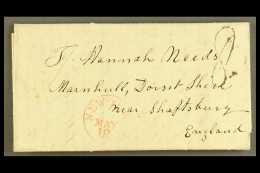 T. Hannah Needs
Marnhull, Dorset Shire
near Shaftsbury
England
MAY